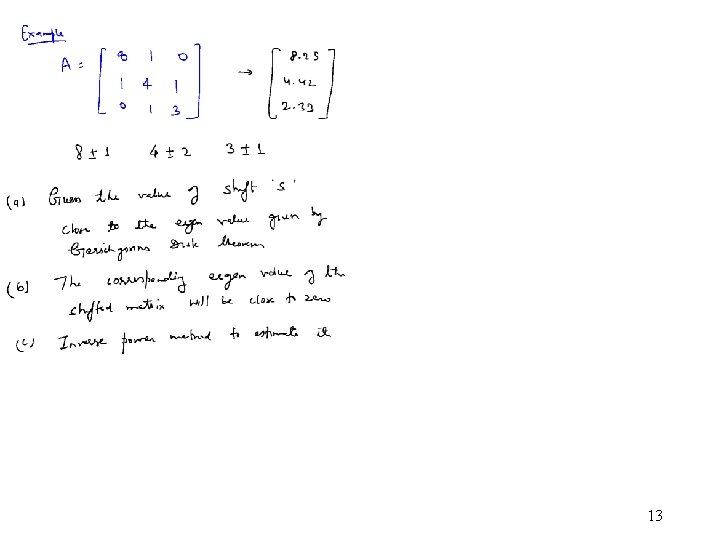 Example
A = [ 8 1 0 → [ 8.25
1 4 1 4.42
0 1 3 ] 2.33 ]
8 ± 1 4 ± 2 3 ± 1
(a) Guess the value of shift 's'
close to the eigen value given by
Gerschgorins Disk theorem
(b) The corresponding eigen value of the
shifted matrix will be close to zero
(c) Inverse power method to estimate it
13